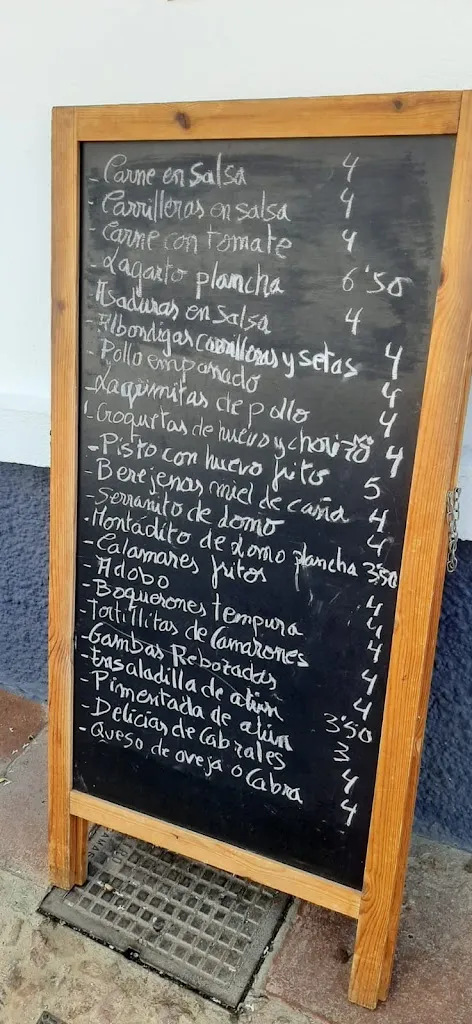 - Carne en salsa 4
- Carrilleras en salsa 4
- Carne con tomate 4
- Lagarto plancha 6'50
- Asaduras en salsa 4
- Albondigas carrilleras y setas 4
- Pollo empanado 4
- Lagrimitas de pollo 4
- Croquetas de huevo y chorizo 4
- Pisto con huevo frito 5
- Berejenas miel de caña 4
- Serranito de lomo 4
- Montadito de lomo plancha 3'50
- Calamares fritos 4
- Adobo 4
- Boquerones tempura 4
- Tortillitas de Camarones 4
- Gambas Rebozadas 4
- Ensaladilla de atún 3'50
- Pimentada de atún 3
- Delicias de Cabrales 4
- Queso de oveja o Cabra 4